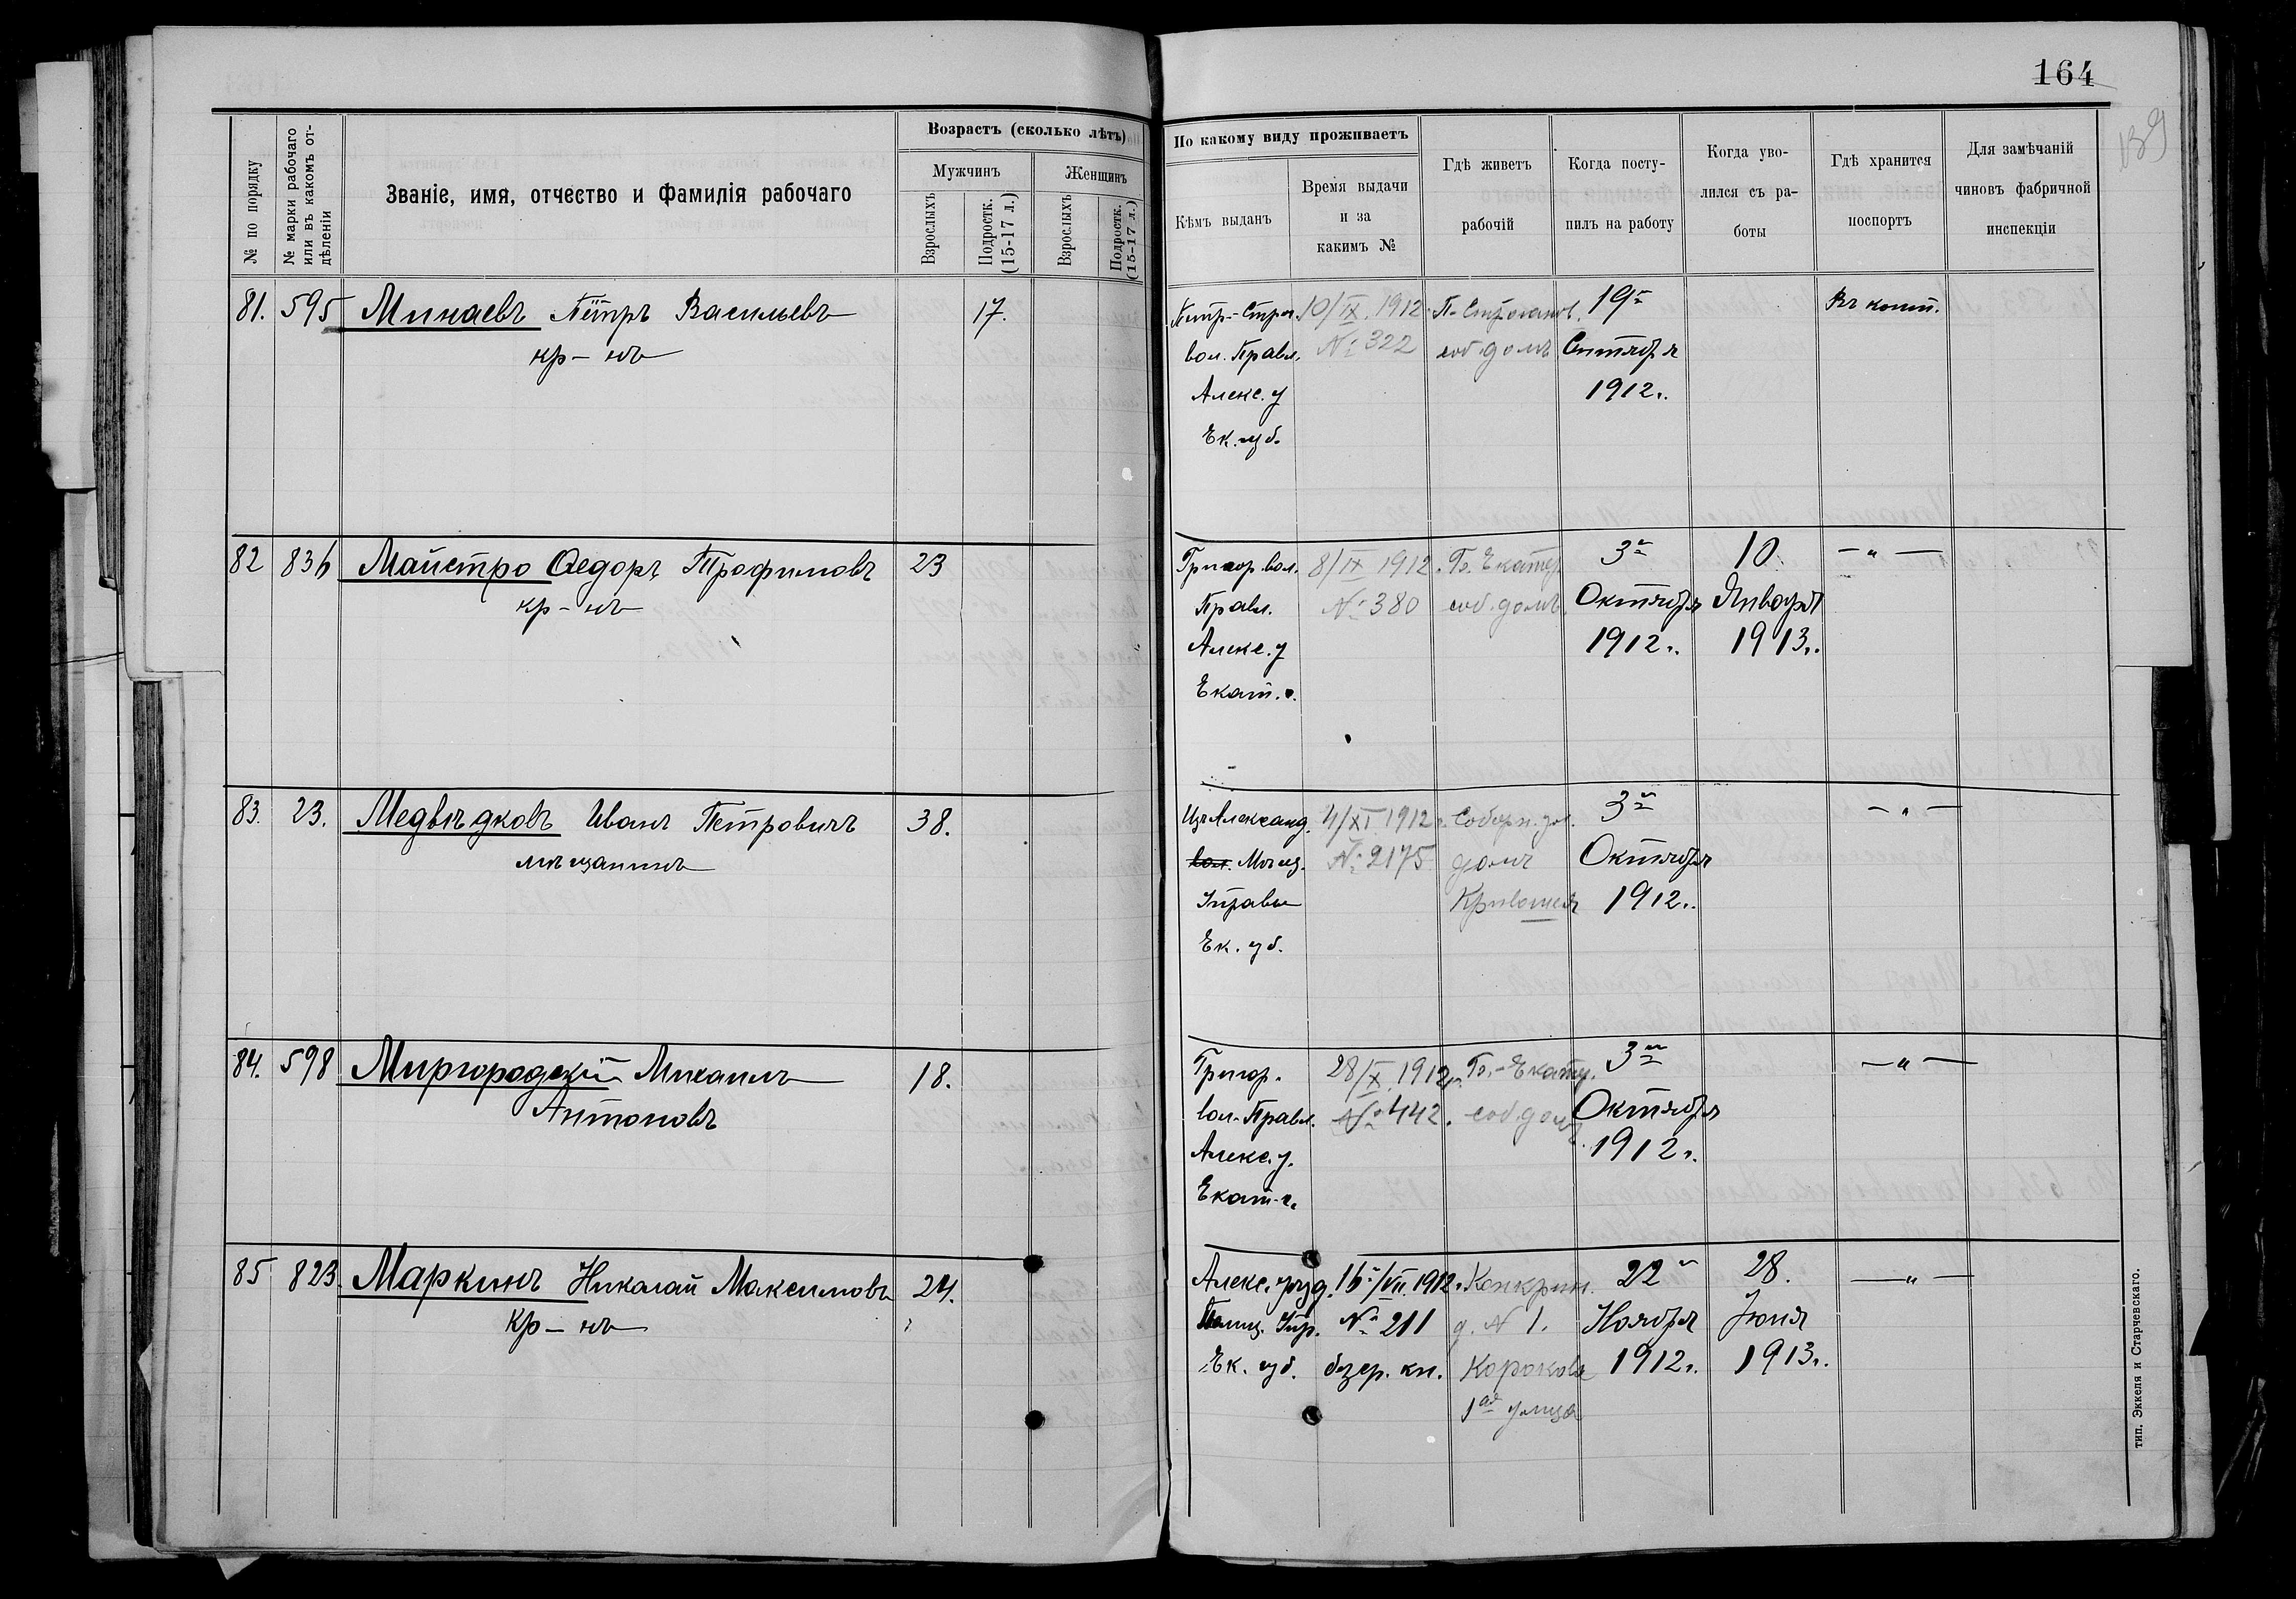 164
139
№ по порядку
№ марки рабочаго
или въ какомъ от-
дѣленіи
Званіе, имя, отчество и фамилія рабочаго
Возрастъ (сколько лѣтъ)
Мужчинъ
Женщинъ
Взрослыхъ
Подростк.
(15-17 л.)
Взрослыхъ
Подростк.
(15-17 л.)
По какому виду проживаетъ
Кѣмъ выданъ
Время выдачи
и за
какимъ №
Гдѣ живетъ
рабочій
Когда посту-
пилъ на работу
Когда уво-
лился съ ра-
боты
Гдѣ хранится
поспортъ
Для замѣчаній
чиновъ фабричной
инспекціи
81. 595 Минаевъ Пётръ Васильевъ 17.
кр-нъ
Петр.-Строг. 10/IX. 1912 П. Строганов. 19го Въ конт.
вол. Правл. № 322 соб. домъ Сентября
Алекс. у 1912 г.
Ек. губ.
82 836 Майстро Ѳедоръ Трофимовъ 23
кр-нъ
Григор. вол. 8/IX 1912 г. Го. Екатер. 3го 10 — " —
Правл. № 380 соб. домъ Октября Января
Алекс. у 1912 г. 1913 г.
Екат. г.
83. 23. Медвѣдковъ Иванъ Петровичъ 38.
мѣщанинъ
Александ. 4/XI 1912 г. Соборн. 3го — " —
вол. Мѣщ. № 2175 домъ Октября
Управы Кривошея 1912 г.
Ек. губ.
84. 598 Миргородскій Михаилъ 18.
Антоновъ
Григор. 28/IX 1912 г. Го.-Екатер. 3го — " —
вол. Правл. № 442. соб. домъ Октября
Алекс. у. 1912 г.
Екат. г.
85 823. Маркинъ Николай Максимовъ 24.
кр-нъ
Алекс. уѣзд. 16го/VII. 1912 г. Канкрин. 22го 28. — " —
Полиц. Упр. № 211 д. № 1. Ноября Іюня
Ек. губ. безср. кн. 1912 г. 1913 г.
1ая улица
тип. Эккеля и Старчевскаго.